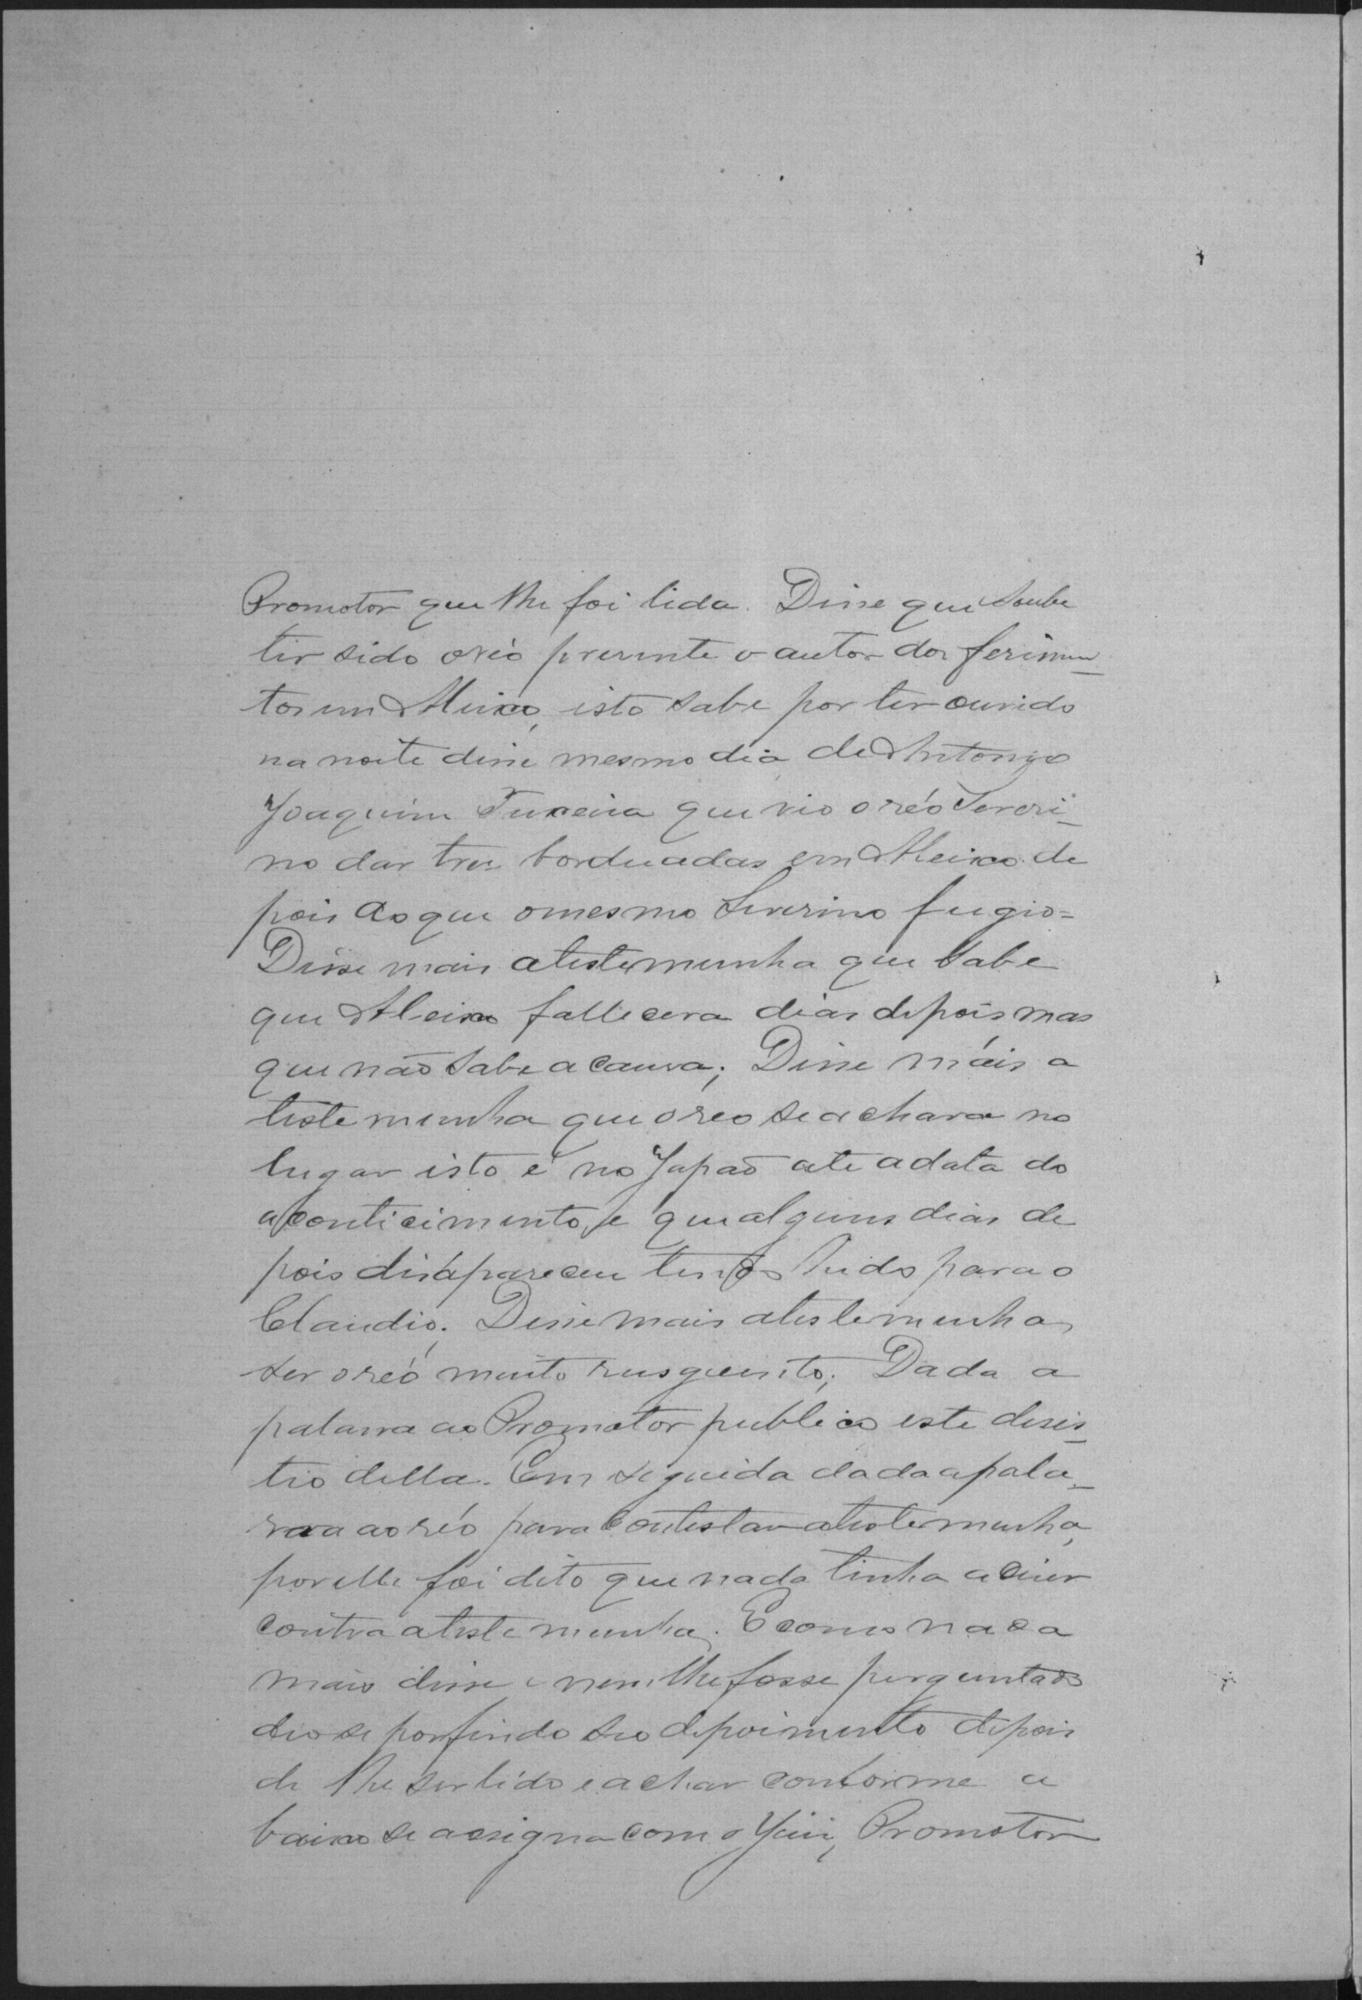 Promotor que lhe foi lida. Disse que soube
ter sido o réo presente o autor dos ferimen-
tos em Aleixo, isto sabe por ter ouvido
na noite desse mesmo dia de Antonio
Joaquim Teixeira que vio o réo Severi-
no dar tres borduadas em Aleixo de
pois do que o mesmo Severino fugio=
Disse mais a testemunha que sabe
que Aleixo fallecera dias depois mas
que não sabe a causa; Disse mais a
testemunha que o reo se achava no
lugar isto é no Japão até a data do
aconticimento, e que alguns dias de
pois disápareceu tendo hido para o
Claudio. Disse mais a testemunha
ser o réo muito rusguento; Dada a
palavra ao Promotor publico este desis-
tio della. Em seguida dada a pala-
vra ao réo para contestar a testemunha,
por elle foi dito que nada tinha a diser
contra a testemunha. E como nada
mais disse e nem lhe fosse perguntado
deo se por findo seo depoimento depois
de lhe ser lido e achar conforme a
baixo se assigna com o Juiz, Promotor